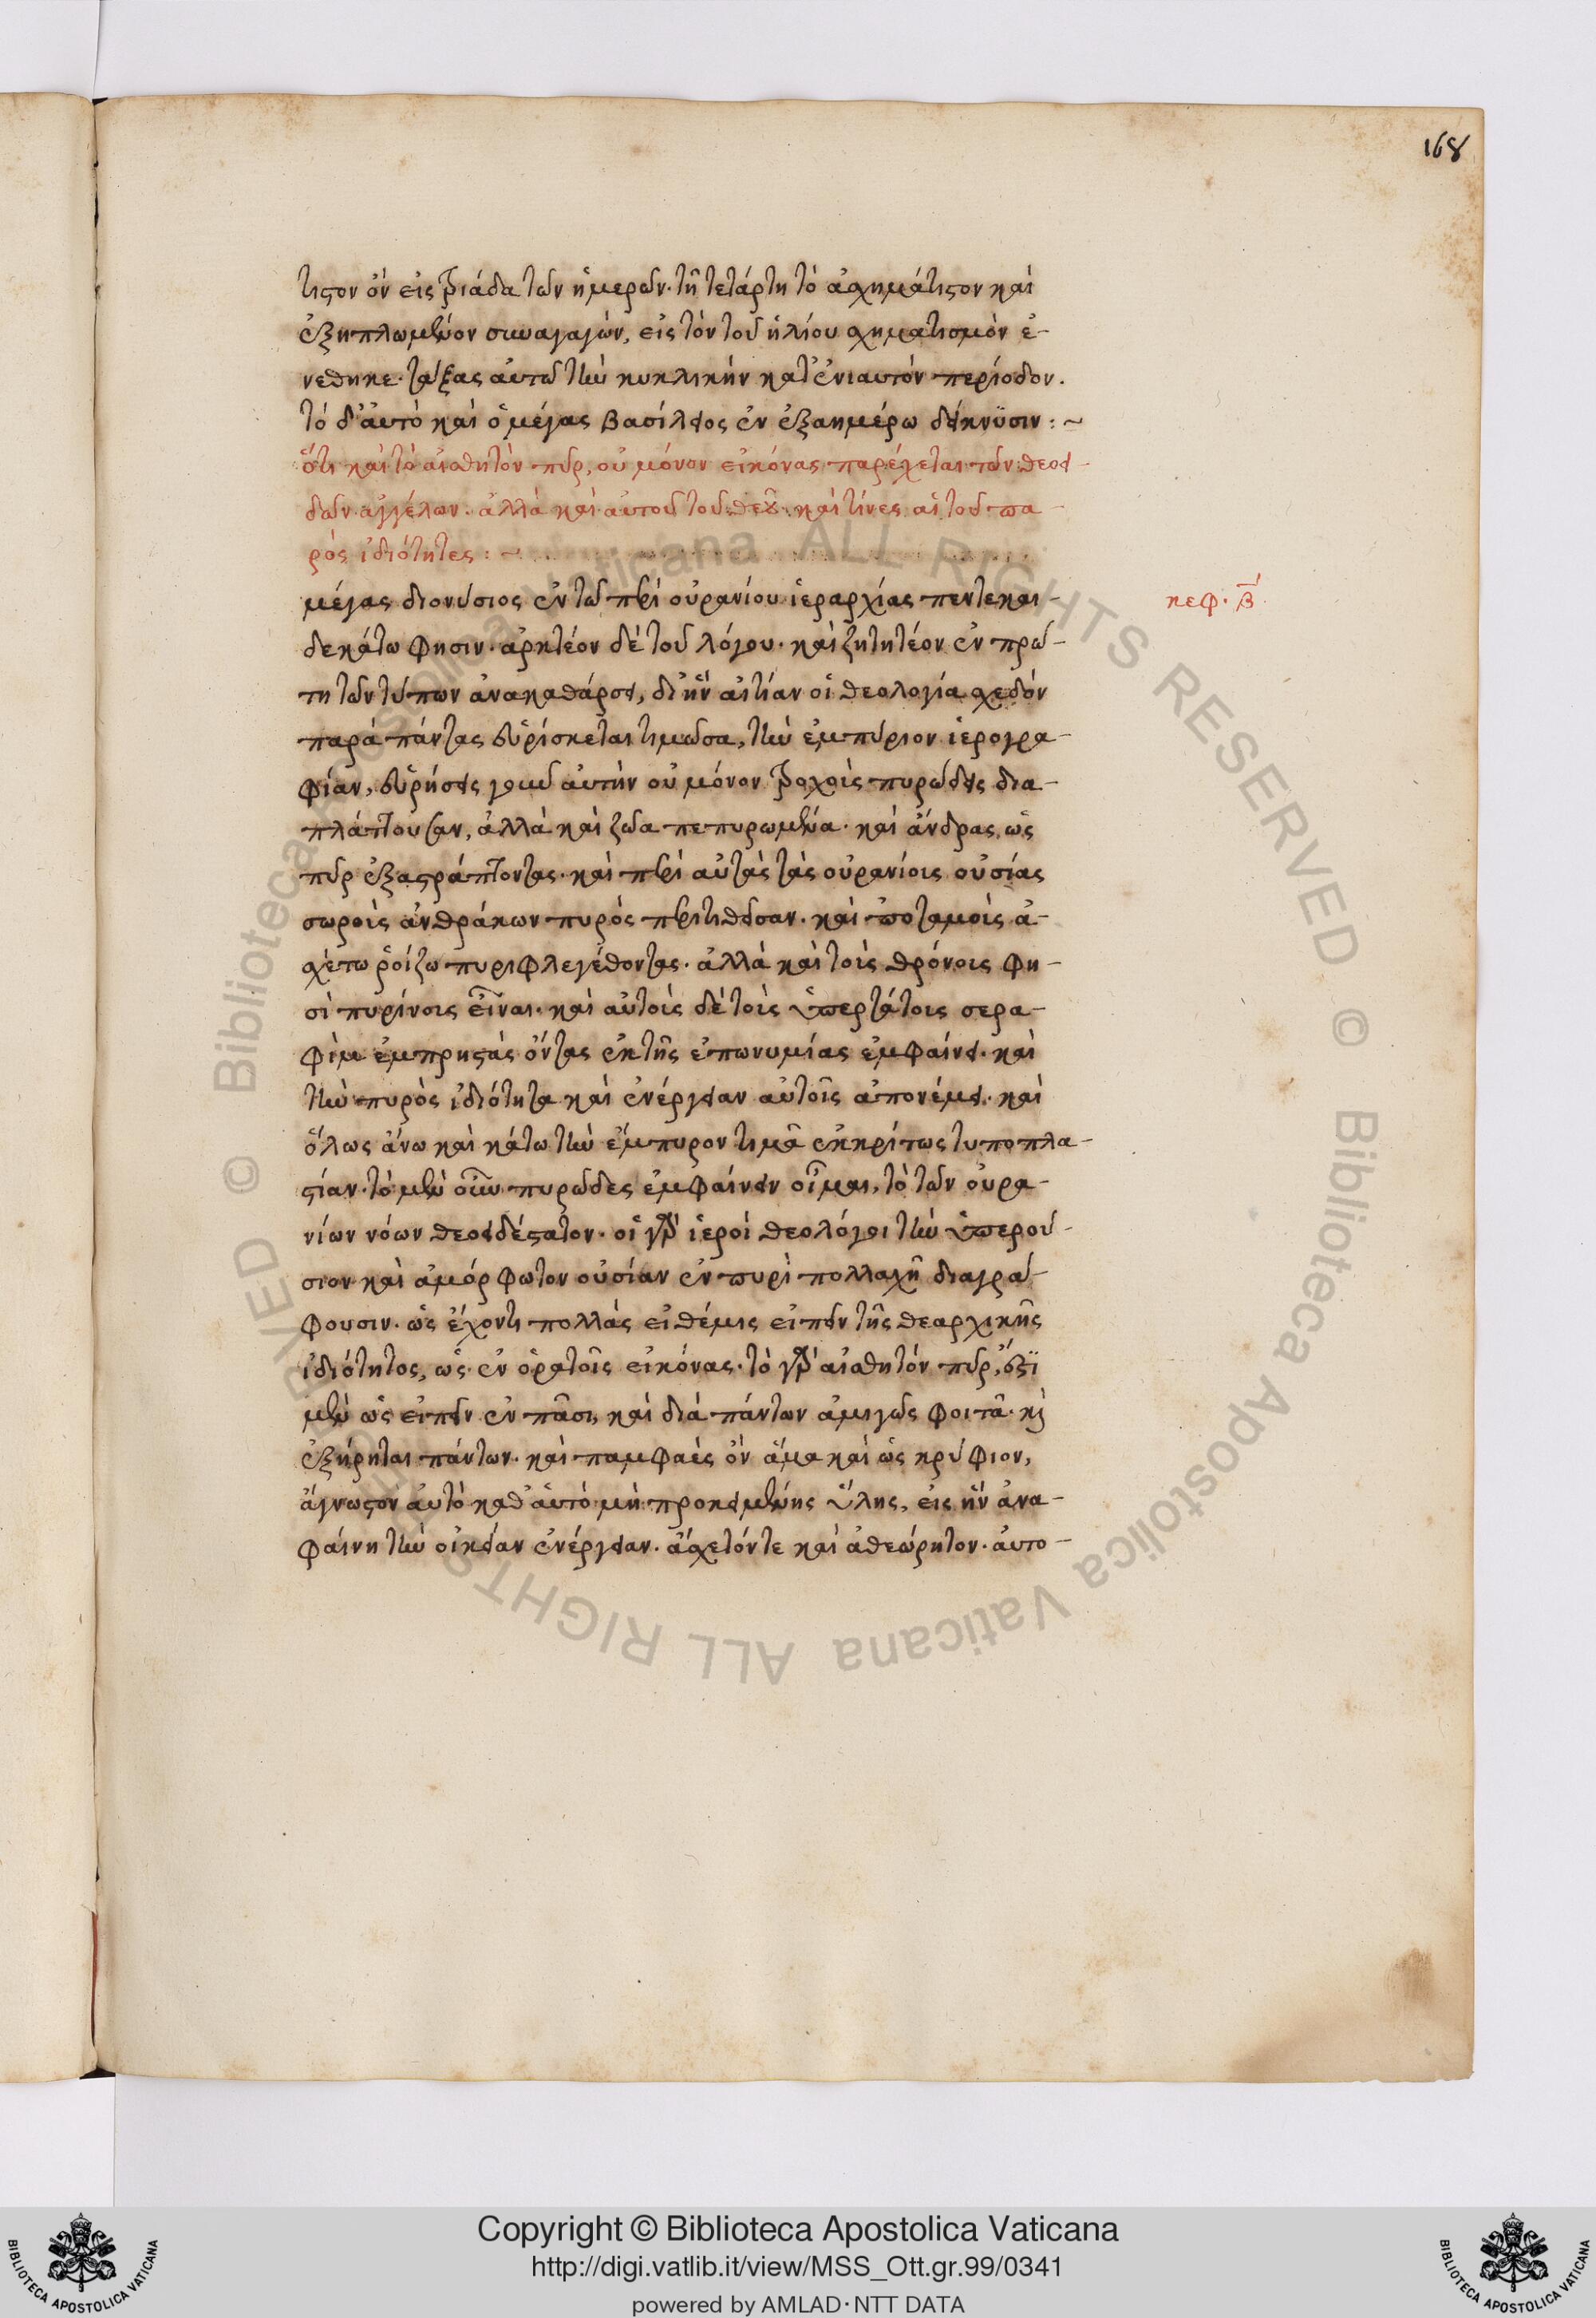 168
τιστον ὂν εἰς τριάδα τῶν ἡμερῶν· τῆ τετάρτη τὸ ἀσχημάτιστον καὶ
ἐξηπλωμένον συναγαγὼν, εἰς τὸν τοῦ ἡλίου σχηματισμὸν ἐ-
νέθηκε· τάξας αὐτῶ τὴν κυκλικὴν κατ' ἐνιαυτὸν περίοδον.
τὸ δ' αὐτὸ καὶ ὁ μέγας βασίλειος ἐν ἑξαημέρω δείκνϋσιν : ~
ὅτι καὶ τὸ αἰσθητὸν πῦρ, οὐ μόνον εἰκόνας παρέχεται τῶν θεοει-
δῶν ἀγγέλων· ἀλλὰ καὶ αὐτοῦ τοῦ θεοῦ· καὶ τίνες αἱ τοῦ πυ-
ρὸς ἰδιότητες : ~
μέγας διονύσιος ἐν τῶ περὶ οὐρανίου ἱεραρχίας πεντεκαι-
κεφ. β
δεκάτω φησιν· ἀρκτέον δὲ τοῦ λόγου· καὶ ζητητέον ἐν πρώ-
τη τῶν τύπων ἀνακαθάρσει, δι' ἣν αἰτίαν οἱ θεολογία σχεδὸν
παρὰ πάντας εὑρίσκεται τιμῶσα, τὴν ἐμπύριον ἱερογρα-
φίαν, εὑρήσεις γοῦν αὐτὴν οὐ μόνον τροχοὶς πυρώδεις δια-
πλάττουσαν, ἀλλὰ καὶ ζῶα πεπυρωμένα· καὶ ἄνδρας, ὡς
πῦρ ἐξαστράπτοντας· καὶ περὶ αὐτὰς τὰς οὐρανίοις οὐσίας
σωροὶς ἀνθράκων πυρὸς περιτιθεῖσαν· καὶ ποταμοὶς ἀ-
σχέτω ῥοίζω πυριφλεγέθοντας· ἀλλὰ καὶ τοὶς θρόνοις φη-
σὶ πυρίνοις εἶναι· καὶ αὐτοὶς δὲ τοὶς ὑπερτάτοις σερα-
φὶμ ἐμπρηστὰς ὄντας ἐκ τῆς ἐπωνυμίας ἐμφαίνει· καὶ
τὴν πυρὸς ἰδιότητα καὶ ἐνέργειαν αὐτοῖς ἀπονέμει· καὶ
ὅλως ἄνω καὶ κάτω τὴν ἔμπυρον τιμᾶ ἐκκρίτως τυποπλα-
στίαν· τὸ μὲν οὖν πυρῶδες ἐμφαίνειν οἶμαι, τὸ τῶν οὐρα-
νίων νόων θεοειδέστατον· οἱ γὰρ ἱεροὶ θεολόγοι τὴν ὑπερού-
σιον καὶ ἀμόρφωτον οὐσίαν ἐν πυρὶ πολλαχῆ διαγρά-
φουσιν· ὡς ἔχοντι πολλὰς εἰ θέμις εἰπεῖν τῆς θεαρχικῆς
ἰδιότητος, ὡς ἐν ὁρατοῖς εἰκόνας· τὸ γὰρ αἰσθητὸν πῦρ, ἔστϊ
μὲν ὡς εἰπεῖν ἐν πᾶσι, καὶ διὰ πάντων ἀμιγῶς φοιτᾶ· κὶ
ἐξήρηται πάντων· καὶ παμφαὲς ὂν ἅμα καὶ ὡς κρύφιον,
ἄγνωστον αὐτὸ καθ' ἁυτὸ μὴ προκειμένης ὕλης, εἰς ἣν ἀνα-
φαίνη τὴν οἰκείαν ἐνέργειαν· ἄσχετόν τε καὶ ἀθεώρητον· αὐτο-
Copyright © Biblioteca Apostolica Vaticana
http://digi.vatlib.it/view/MSS_Ott.gr.99/0341
powered by AMLAD·NTT DATA
BIBLIOTECA APOSTOLICA VATICANA
BIBLIOTECA APOSTOLICA VATICANA
© Biblioteca Apostolica Vaticana ALL RIGHTS RESERVED © Biblioteca Apostolica Vaticana ALL RIGHTS RESERVED